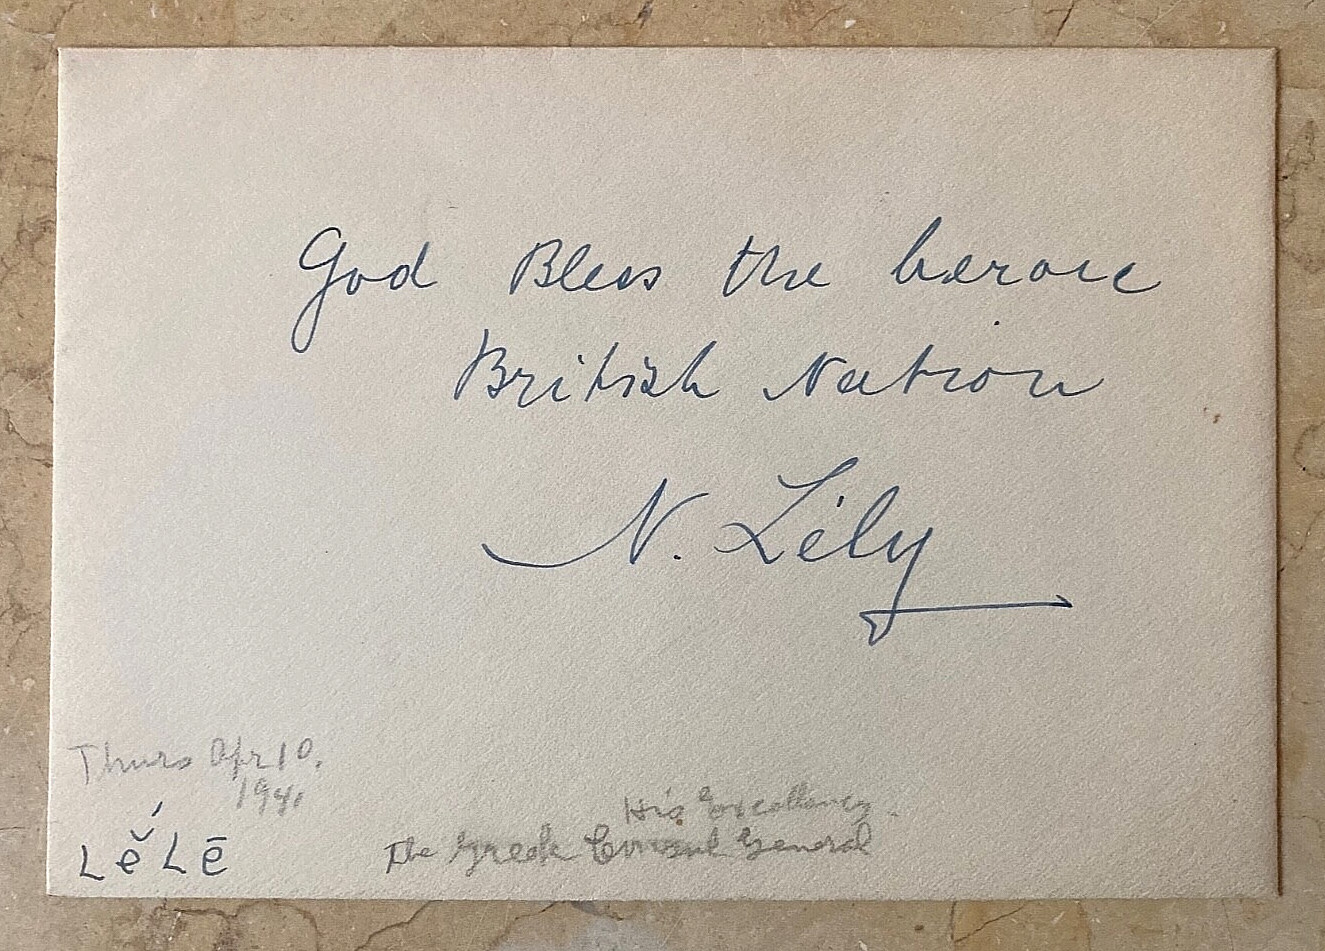 God Bless the heroic
British Nation
N. Lély
Thurs Apr 10.
1941
Lĕ́ Lē
His Excellancy.
The Greek Consul General